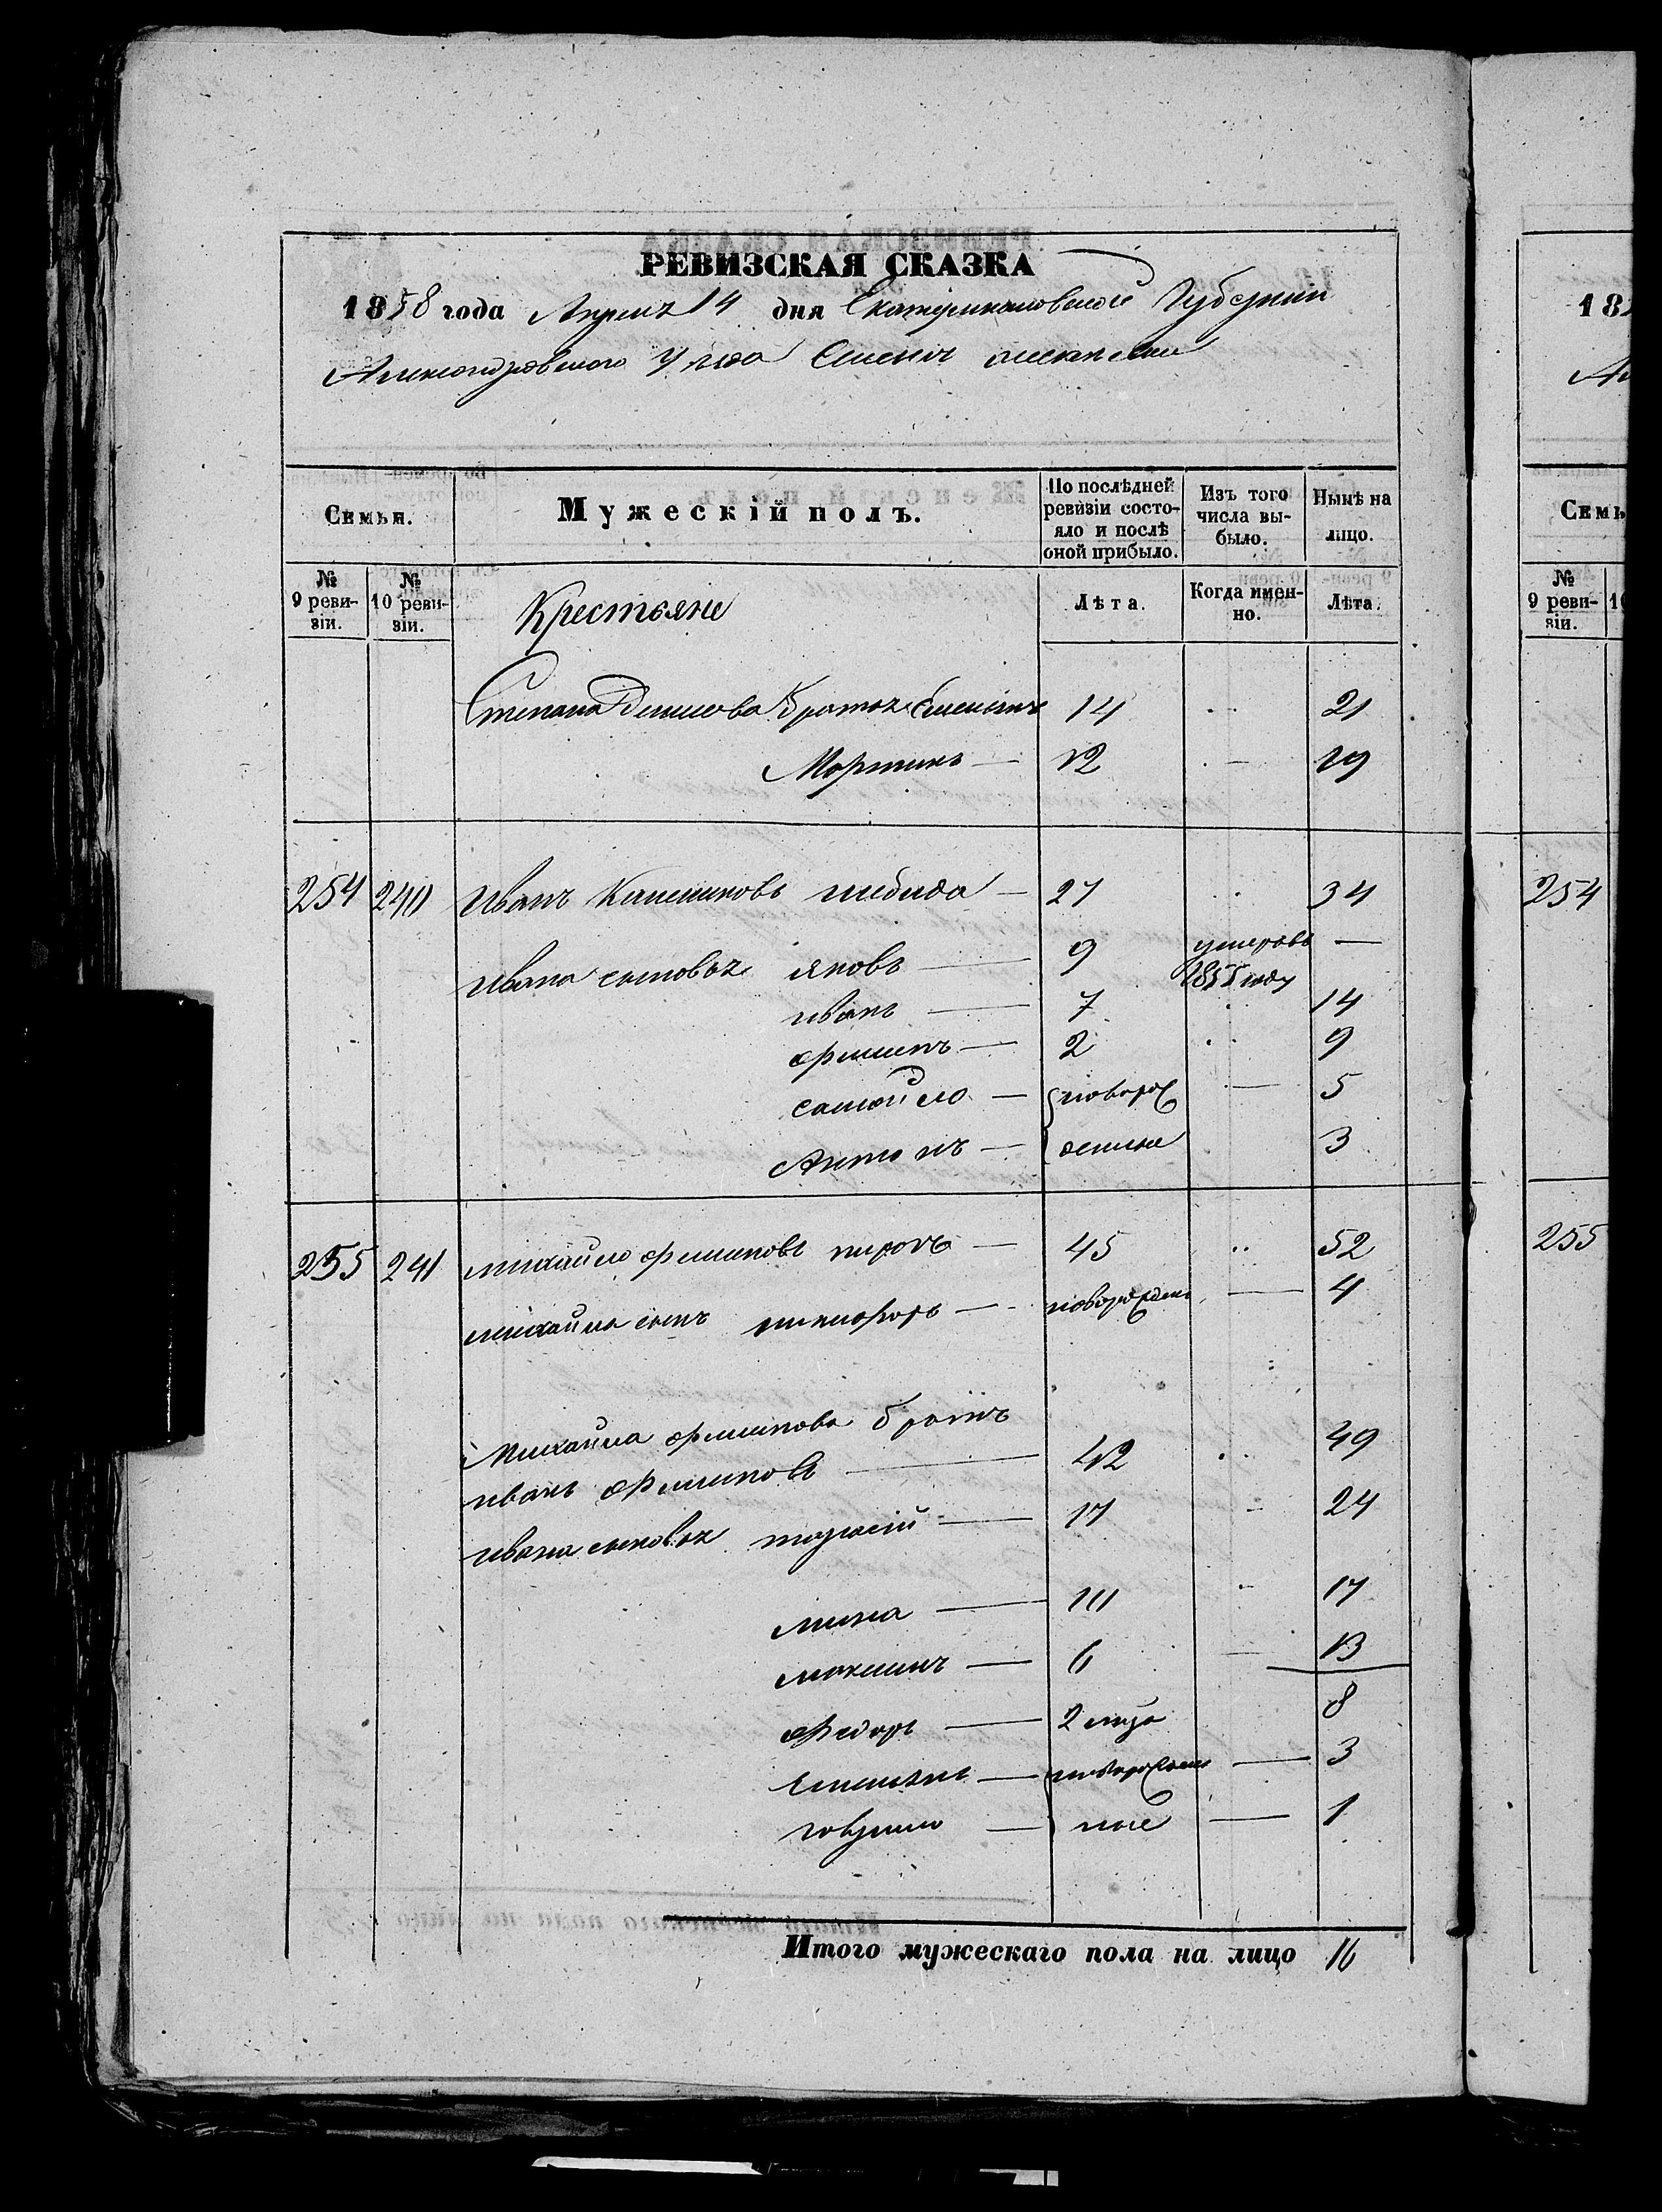 РЕВИЗСКАЯ СКАЗКА
1858 года Апреля 14 дня Екатеринославской Губернии
Александровского Уезда
Семьи.
Мужескій полъ.
По послѣдней ревизіи состо-
яло и послѣ
оной прибыло.
Изъ того
числа вы-
было.
Нынѣ на
лицо.
№
9 реви-
зіи.
№
10 реви-
зіи.
Крестьяне
Лѣта.
Когда имен-
но.
Лѣта.
Степана Денисова братья Емельянъ 14 21
Мартинъ — 12 — 19
254 240 Иванъ — 27 34
Ивана сыновья Яковъ — 9 умеръ въ 1855 году —
Иванъ — 7 14
Филипъ — 2 9
Самойло — новорож 5
Антонъ — денные 3
255 241 Михайло Филиповъ — 45 52
Михайла сынъ Никифоръ — новорожден — 4
Михайла Филипова братъ
Иванъ Филиповъ — 42 49
Ивана сыновья Тарасій — 17 24
Мина — 10 17
Максимъ — 6 — 13
Федоръ — 2 8
Емельянъ — новорожден — 3
Говрило — ные — 1
Итого мужескаго пола на лицо 16
182
Семь
№
9 реви-
зіи.
254
255